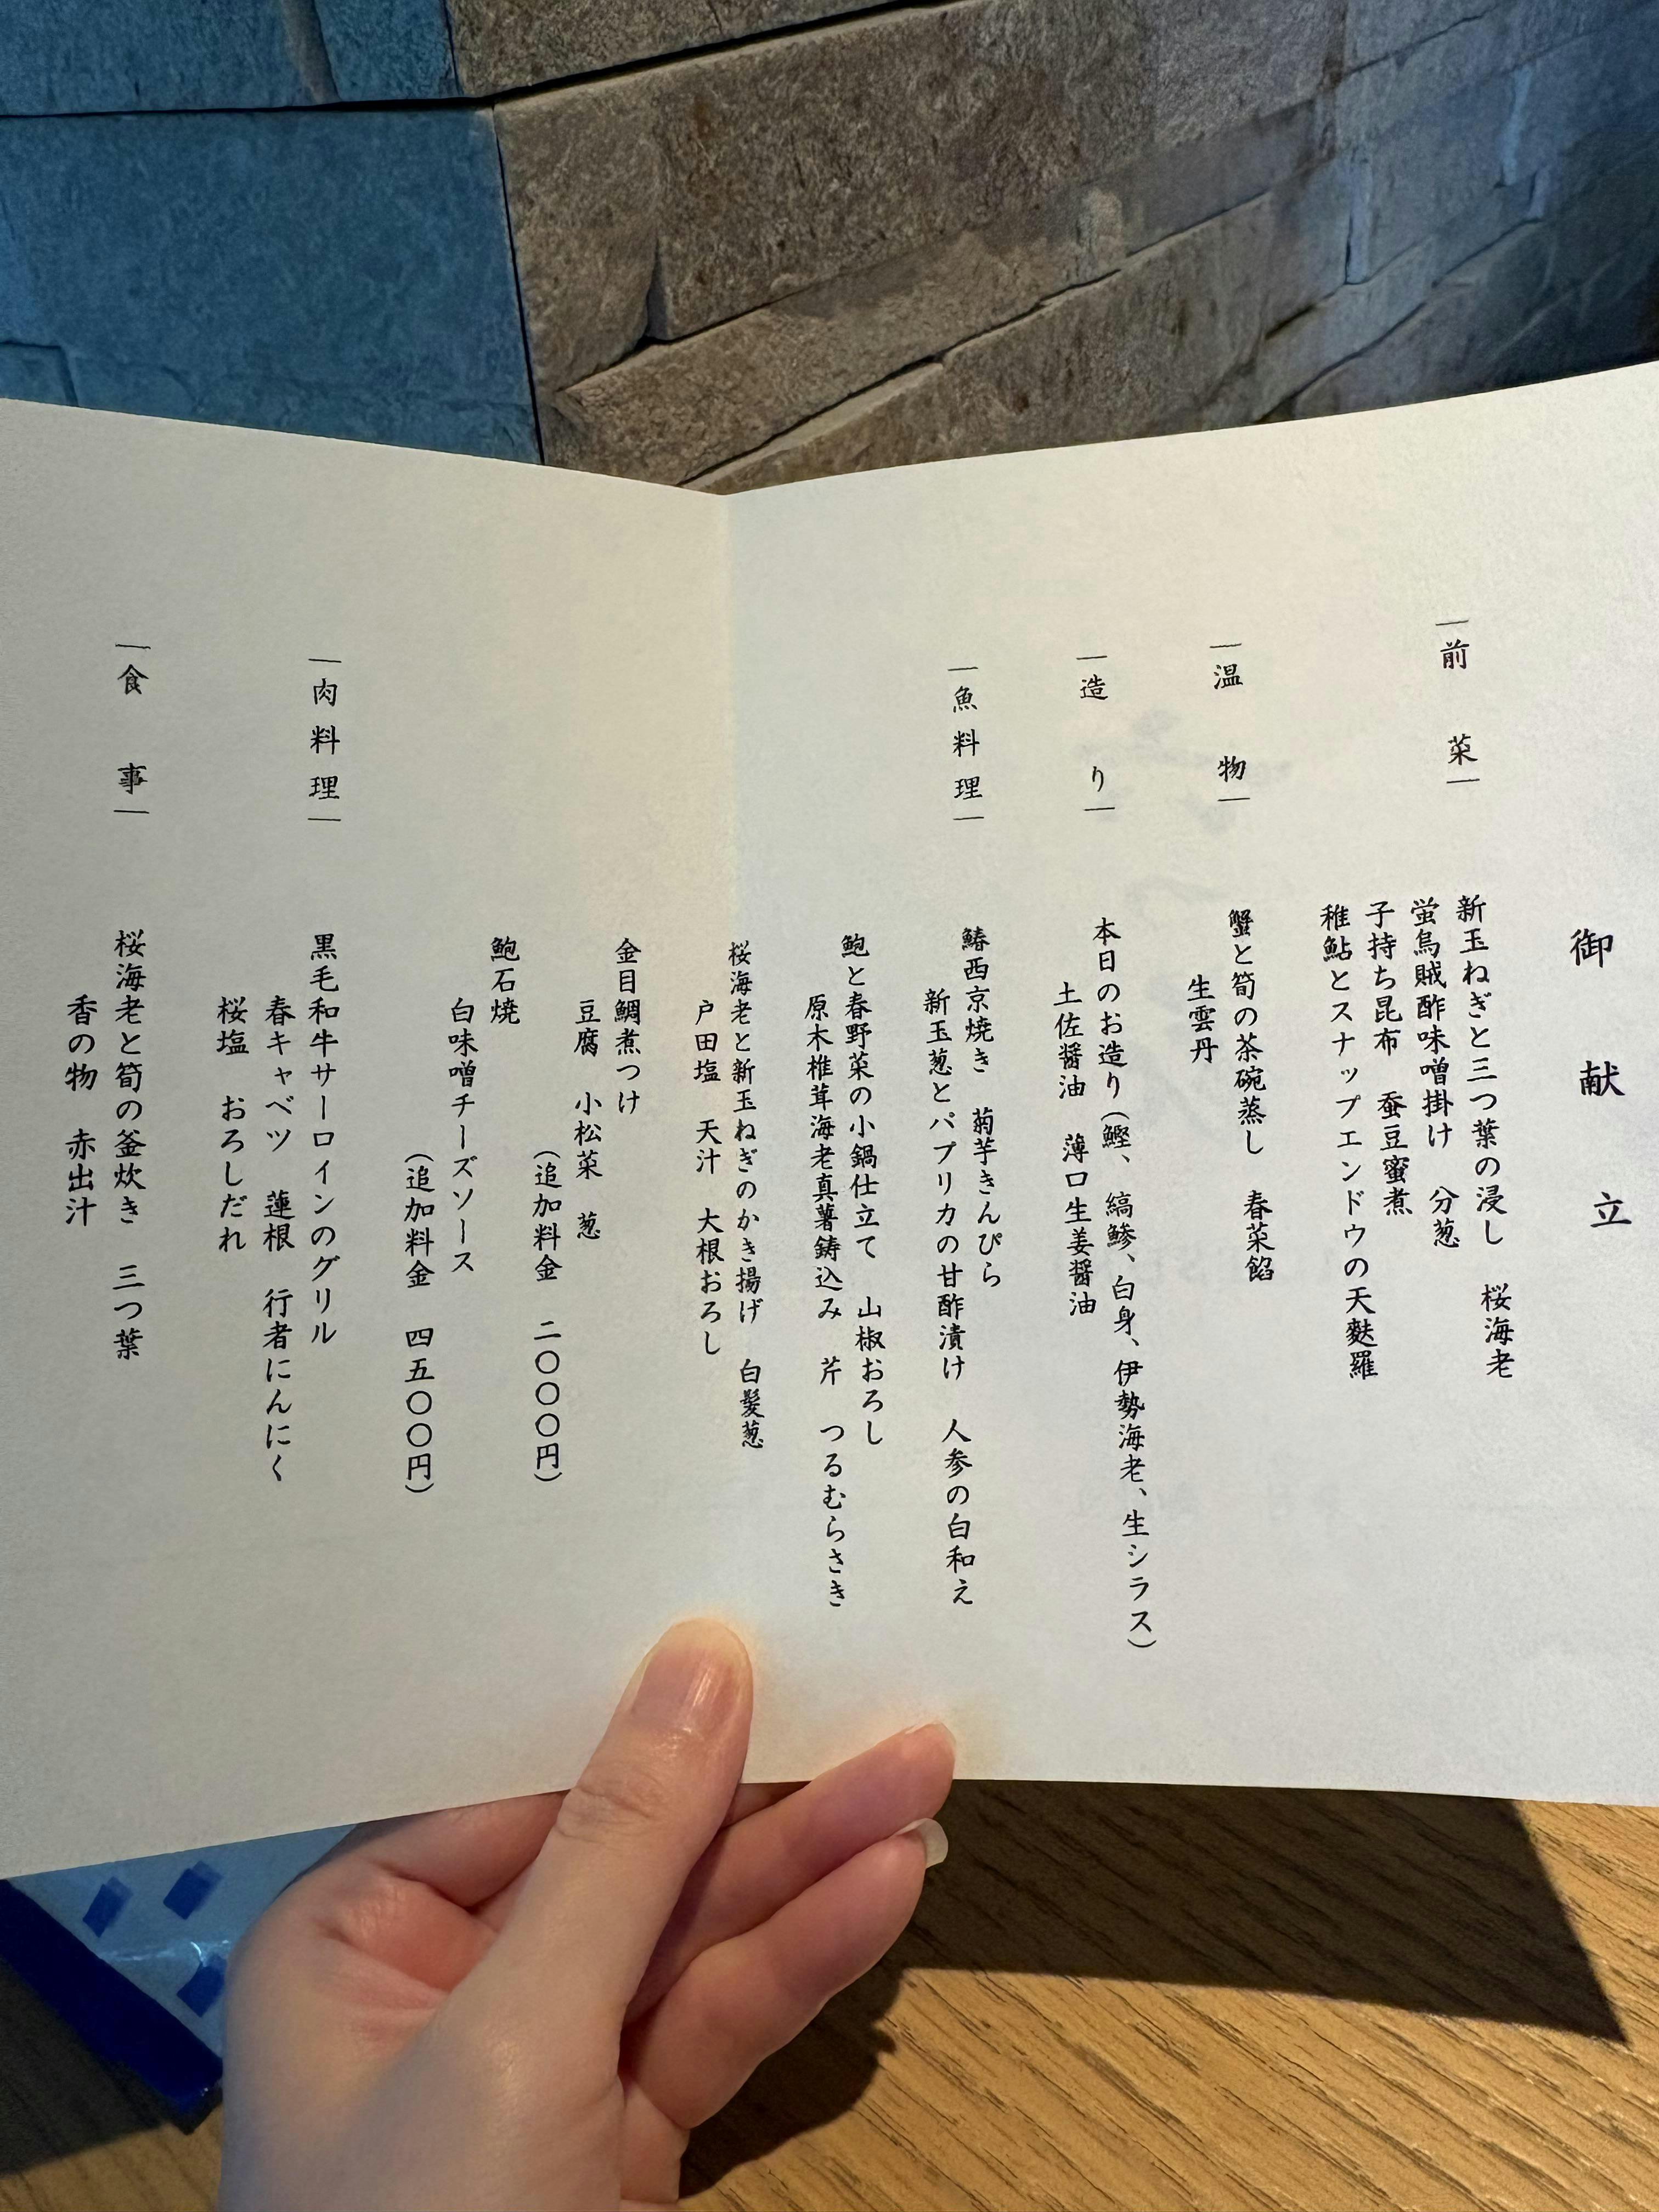 御献立
―前菜―
新玉ねぎと三つ葉の浸し 桜海老
蛍烏賊酢味噌掛け 分葱
子持ち昆布 蚕豆蜜煮
稚鮎とスナップエンドウの天麩羅
―温物―
蟹と筍の茶碗蒸し 春菜餡
生雲丹
―造り―
本日のお造り(鰹、縞鯵、白身、伊勢海老、生シラス)
土佐醤油 薄口生姜醤油
―魚料理―
鰆西京焼き 菊芋きんぴら
新玉葱とパプリカの甘酢漬け 人参の白和え
鮑と春野菜の小鍋仕立て 山椒おろし
原木椎茸海老真薯鋳込み 芹 つるむらさき
桜海老と新玉ねぎのかき揚げ 白髪葱
戸田塩 天汁 大根おろし
金目鯛煮つけ
豆腐 小松菜 葱
(追加料金 二〇〇〇円)
鮑石焼
白味噌チーズソース
(追加料金 四五〇〇円)
―肉料理―
黒毛和牛サーロインのグリル
春キャベツ 蓮根 行者にんにく
桜塩 おろしだれ
―食事―
桜海老と筍の釜炊き 三つ葉
香の物 赤出汁